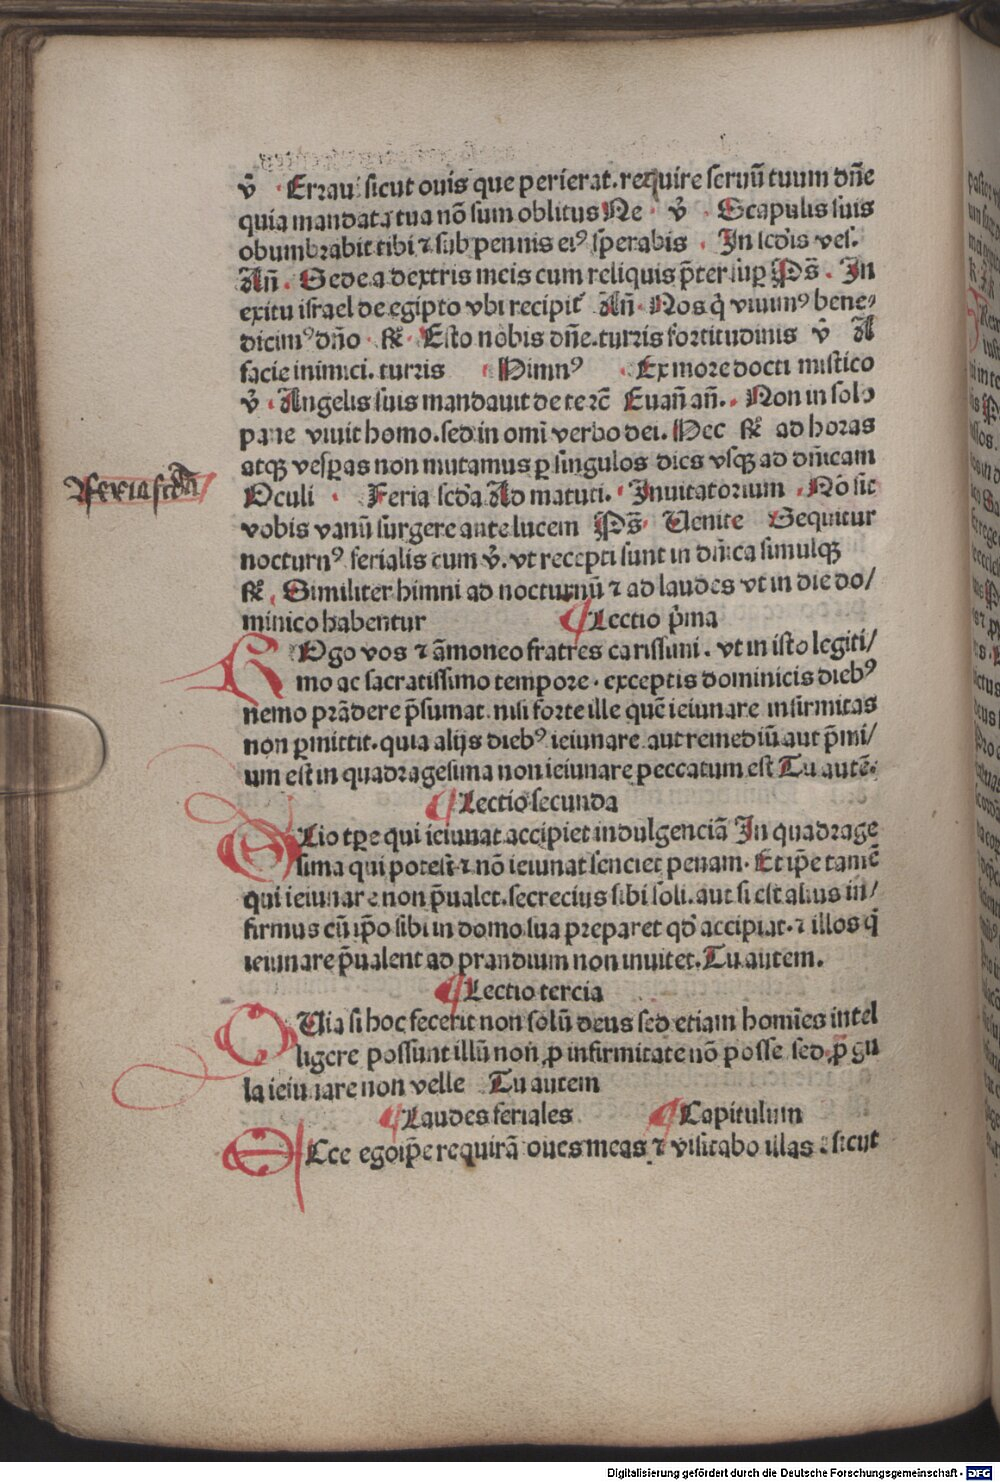 v̄ Erraui sicut ouis que perierat. require seruū tuum dn̄e
quia mandata tua nō sum oblitus Ne v̄ Scapulis suis
obumbrabit tibi ⁊ sub pennis eiꝰ sperabis . In scd̄is ves.
An̄ . Sede a dextris meis cum reliquis p̄ter sup̄ Ps̄ . In
exitu israel de egipto vbi recipit̄ An̄ . Nos q̄ viuimꝰ bene⸗
dicimꝰ dn̄o . R̄ . Esto nobis dn̄e. turris fortitudinis v̄ A
facie inimici. turris Himnꝰ . Ex more docti mistico
v̄ . Angelis suis mandauit de te rc̄ Euan̄ an̄ . . Non in solo
pane viuit homo. sed in omī verbo dei. Hec R̄ ad horas
atqꝫ vesꝑas non mutamus ꝑ singulos dies vsqꝫ ad dn̄icam
Oculi . Feria scd̄a Ad matuti. . Inuitatorium . Nō sit
vobis vanū surgere ante lucem Ps̄ Venite Sequitur
nocturnꝰ ferialis cum v̄. vt recepti sunt in dn̄ica simulqꝫ
R̄ . Similiter himni ad nocturnū ⁊ ad laudes vt in die do/
minico habentur ¶ Lectio p̄ma
ROgo vos ⁊ āmoneo fratres carissimi . vt in isto legiti/
mo ac sacratissimo tempore . exceptis dominicis diebꝰ
nemo prādere p̄sumat. nisi forte ille quē ieiunare infirmitas
non ꝑmittit. quia alijs diebꝰ ieiunare aut remediū aut p̄mi/
um est in quadragesima non ieiunare peccatum est Tu autē.
¶ Lectio secunda
ALio tꝑe qui ieiunat accipiet indulgenciā In quadrage
sima qui potest ⁊ nō ieiunat senciet penam . Et ip̄e tamē
qui ieiunare non p̄ualet. secrecius sibi soli. aut si est alius in/
firmus cū ip̄o sibi in domo sua preparet qd̄ accipiat. ⁊ illos q̄
ieiunare p̄ualent ad prandium non inuitet. Tu autem.
¶ Lectio tercia
QUia si hoc fecerit non solū deus sed etiam homīes intel
ligere possunt illū non ꝓ infirmitate nō posse sed ꝓ gu
la ieiunare non velle Tu autem
¶ Laudes feriales ¶ Capitulum
ECce ego ip̄e requirā oues meas ⁊ visitabo illas . sicut
Feria scd̄a
Digitalisierung gefördert durch die Deutsche Forschungsgemeinschaft - DFG